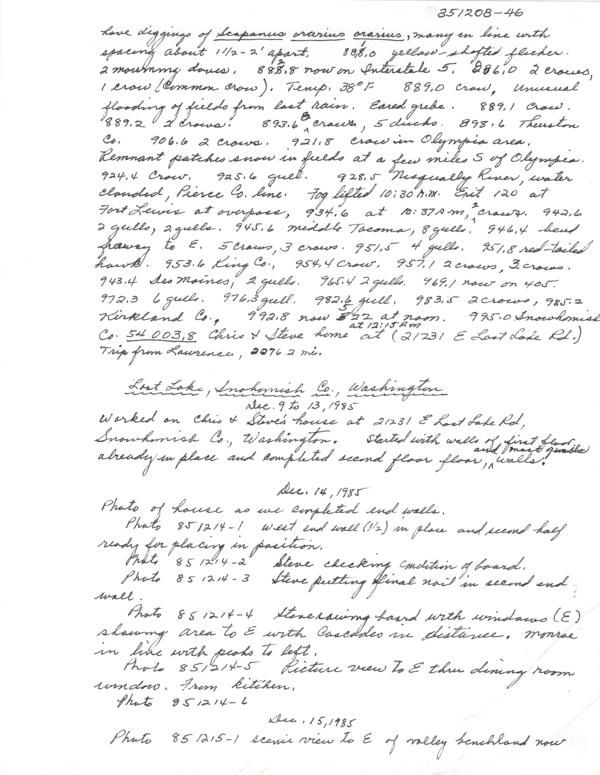 851208-46
have diggings of Scapanus orarius orarius, many in line with
spacing about 1 1/2-2' apart. 888.0 yellow-shafted flicker.
2 mourning doves. 888.8 now on Interstate 5. 886.0 2 crows,
1 crow (Common crow). Temp. 38°F 889.0 crow, Unusual
flooding of fields from last rain. Eared grebe. 889.1 Crow.
889.2 2 crows. 893.6 3 crows, 5 ducks. 898.6 Thurston
Co. 906.6 2 crows. 921.8 crow in Olympia area.
Remnant patches snow in fields at a few miles S of Olympia.
924.4 Crow. 925.6 gull. 928.5 Nisqually River, water
clouded, Pierce Co. line. Fog lifted 10:30 A.M. Exit 120 at
Fort Lewis at overpass, 934.6 at 10:37 A.M, 2 crows. 942.6
2 gulls, 2 gulls. 945.6 middle Tacoma, 8 gulls. 946.4 bend
freeway to E. 5 crows, 3 crows. 951.5 4 gulls. 951.8 red-tailed
hawk. 953.6 King Co., 954.4 crow. 957.1 2 crows, 3 crows.
943.4 Des Moines, 2 gulls. 965.4 2 gulls. 969.1 now on 405.
972.3 6 gulls. 976.3 gull. 982.6 gull. 983.5 2 crows, 985.2
Kirkland Co., 992.8 now 522 at noon. 995.0 Snowhomish
Co. 54 003.8 Chris & Steve home at 12:15 P.M. at (21231 E Lost Lake Rd.)
Trip from Lawrence, 2276.2 mi.
Lost Lake, Snohomish Co., Washington
Dec. 9 to 13, 1985
Worked on Chris & Steve's house at 21231 E Lost Lake Rd,
Snowhomish Co., Washington. Started with walls of first floor
already in place and completed second floor floor, and most of walls.
Dec. 14, 1985
Photo of house as we completed end walls.
Photo 851214-1 West end wall (1/2) in place and second half
ready for placing in position.
Photo 851214-2 Steve checking condition of board.
Photo 851214-3 Steve putting final nail in second end
wall.
Photo 851214-4 Steve sawing board with windows (E)
showing area to E with Cascades in distance. Monroe
in line with peaks to left.
Photo 851214-5 Picture view to E thru dining room
window. From kitchen.
Photo 851214-6
Dec. 15, 1985
Photo 851215-1 scenic view to E of valley benchland now